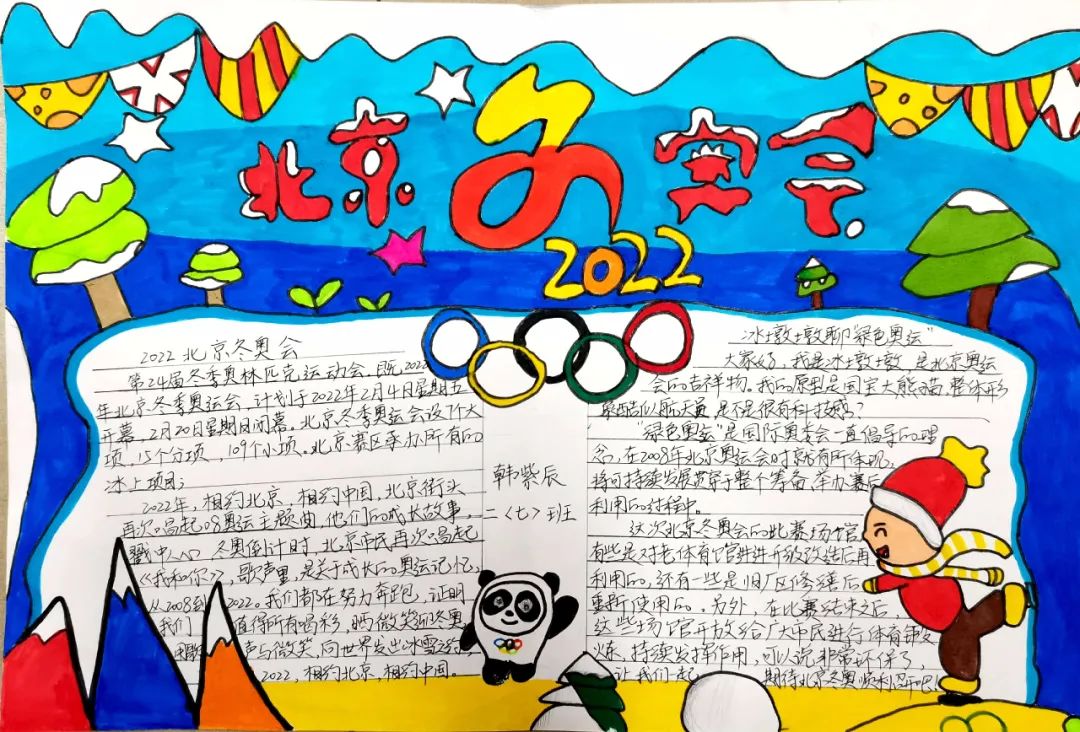 北京冬奥会
2022
2022北京冬奥会
第24届冬季奥林匹克运动会，既2022
年北京冬季奥运会，计划于2022年2月4日星期五
开幕，2月20日星期日闭幕。北京冬季奥运会设7个大
项，15个分项，109个小项。北京赛区承办所有的
冰上项目；
2022年，相约北京，相约中国，北京街头
再次唱起08奥运主题曲，他们的成长故事，
戳中人心 冬奥倒计时，北京市民再次唱起
《我和你》，歌声里，是关于成长的奥运记忆，
从2008到2022。我们都在努力奔跑，证明
我们 值得所有喝彩，
声与微笑，向世界发出冰雪之约，
2022，相约北京，相约中国。
韩紫辰
二〈七〉班
冰墩墩聊“绿色奥运”
大家好，我是冰墩墩，是北京奥运
会的吉祥物。我的原型是国宝大熊猫，整体形
象酷似航天员，是不是很有科技感？
“绿色奥运”是国际奥委会一直倡导的理
念，在2008年北京奥运会时就有所体现，
将可持续发展贯穿于整个筹备，举办赛后
利用的过程中。
这次北京冬奥会的比赛场馆，
有些是对老体育馆进行升级改造后再
利用的，还有一些是旧厂区修缮后
重新使用的。另外，在比赛结束之后，
这些场馆开放给广大市民进行体育锻
炼，持续发挥作用，可以说非常环保了，
让我们一起 期待北京冬奥顺利召开吧！